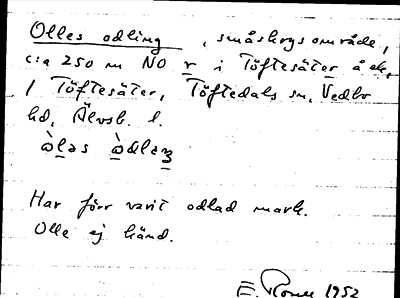 Olles odling, småskogsområde,
c:a 250 m NO r i Töftesäter å ek.
/ Töftesäter, Töftedals sn, Vedbo
hd, Älvsb. l.
òlas òdlaŋ
Har förr varit odlad mark.
Olle ej känd.
E. 1952